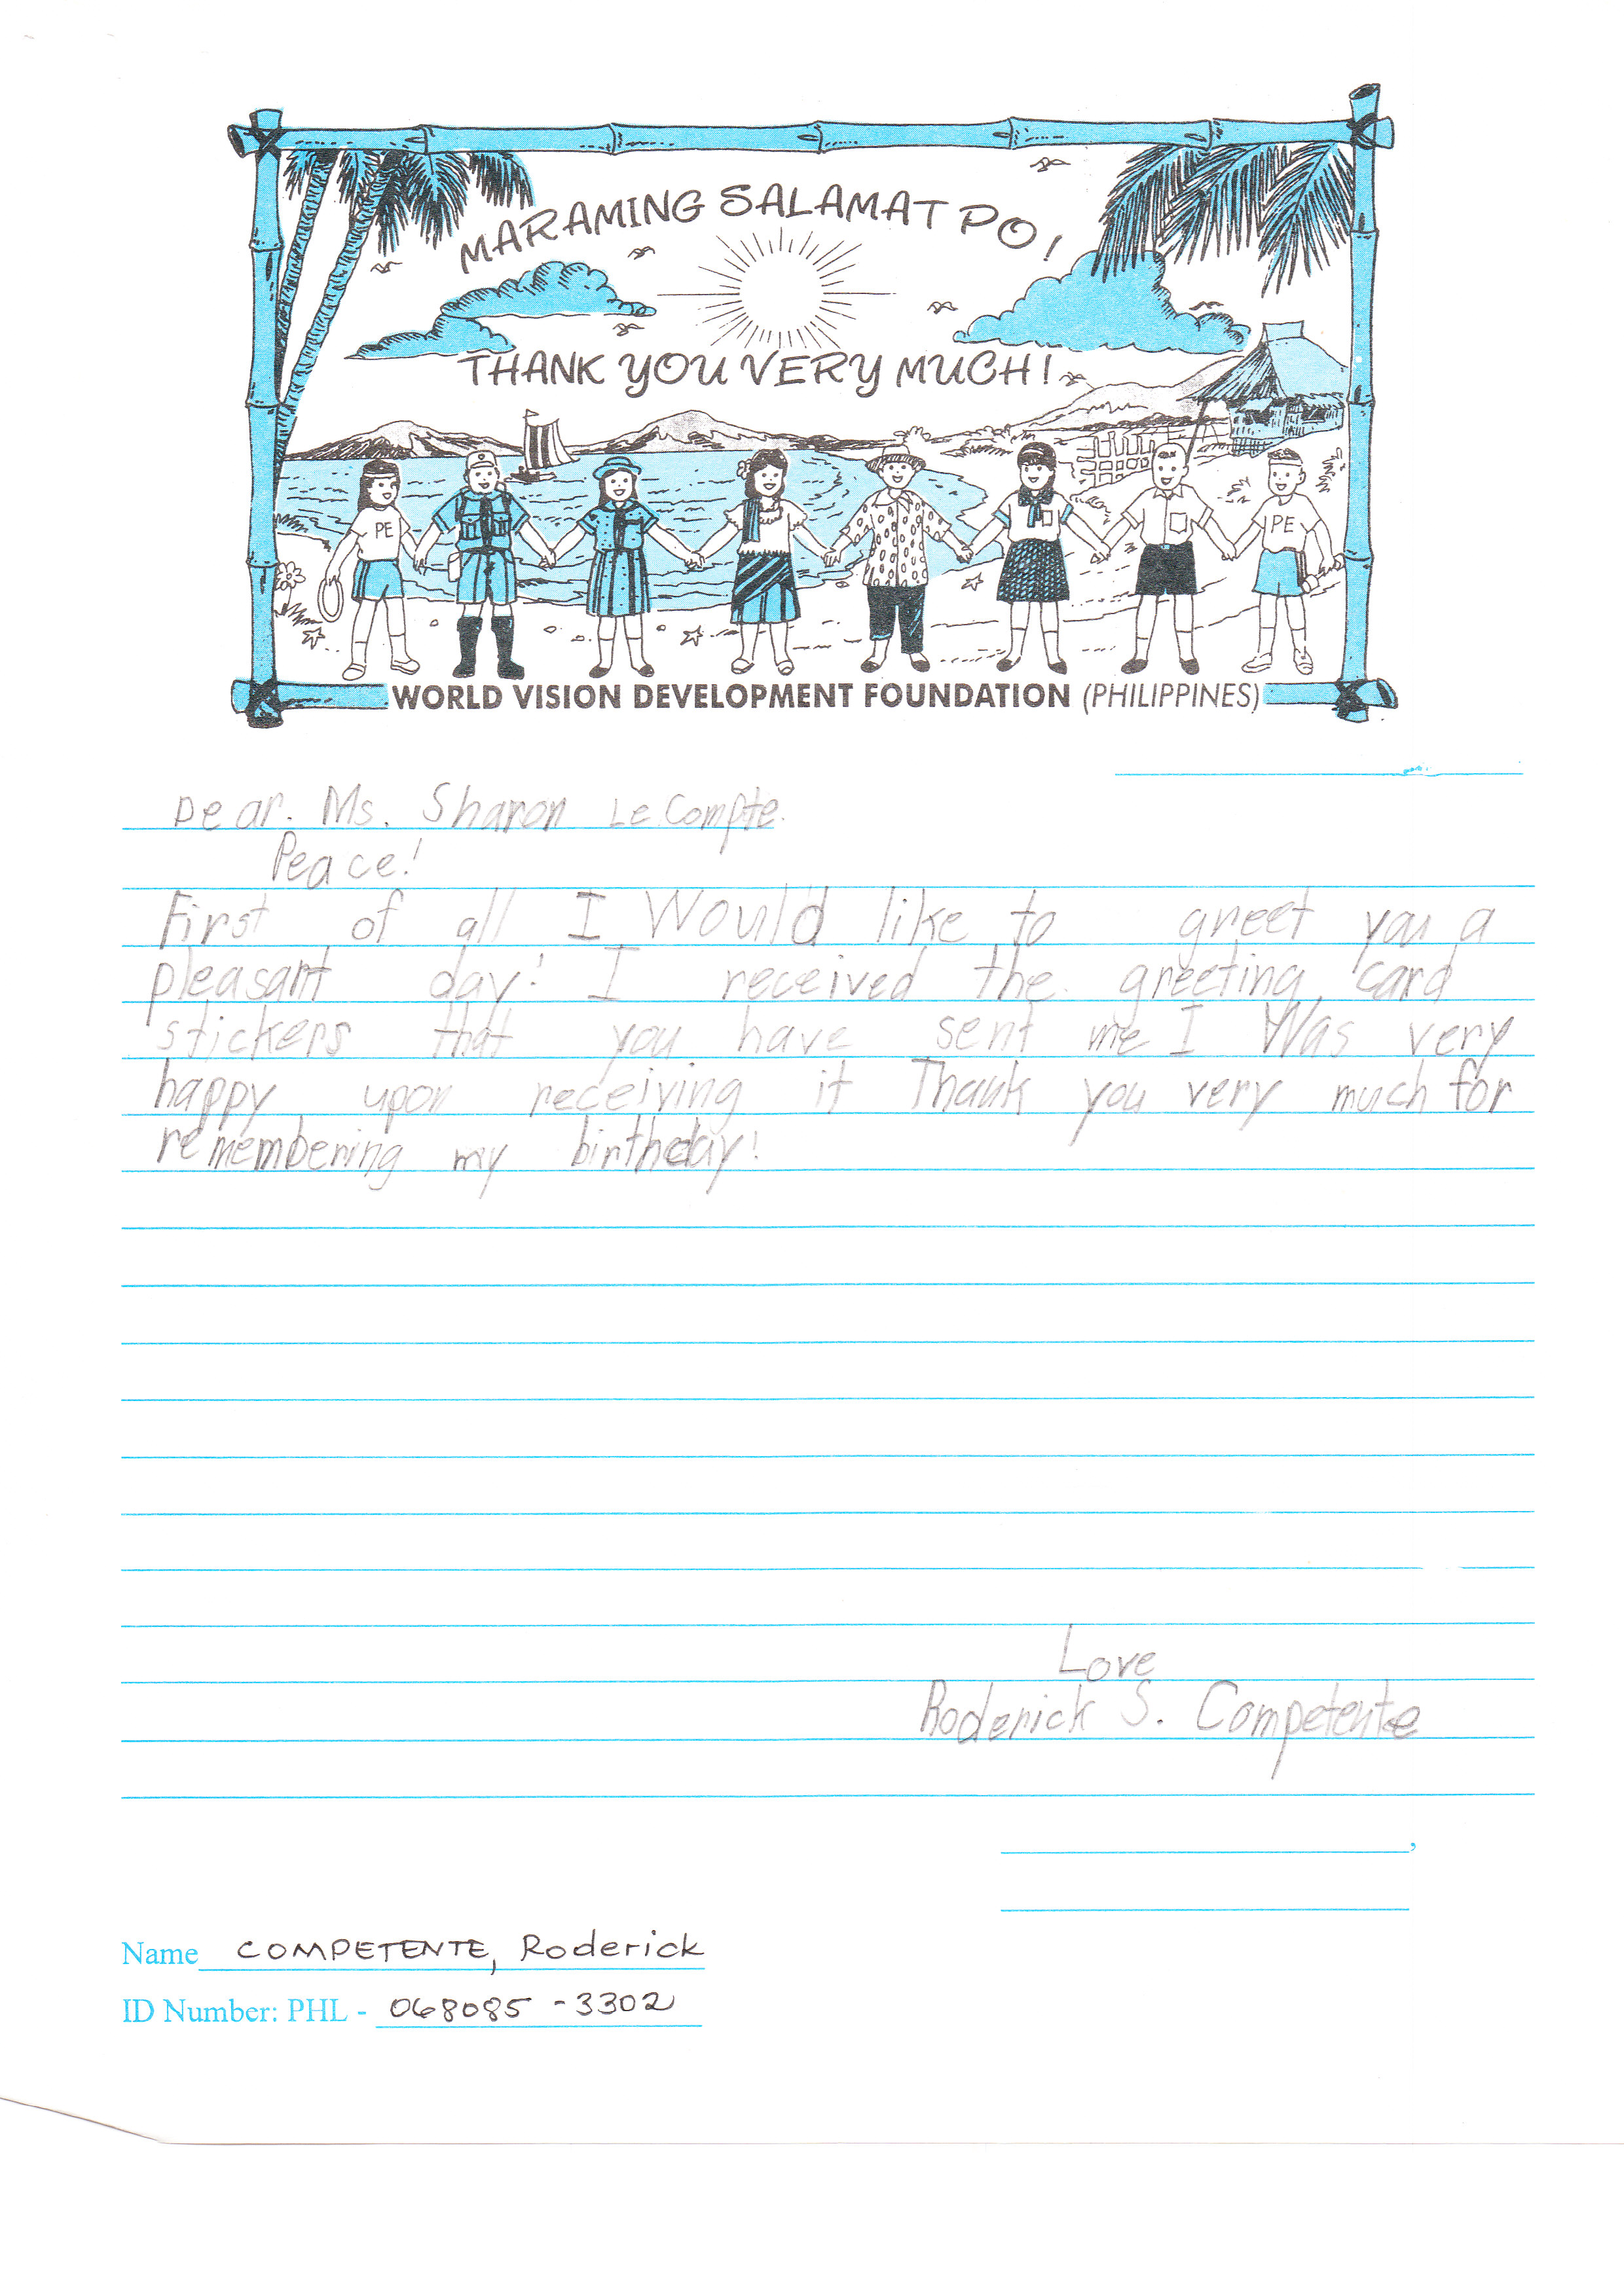 MARAMING SALAMAT PO!
THANK YOU VERY MUCH!
PE
PE
WORLD VISION DEVELOPMENT FOUNDATION (PHILIPPINES)
Dear. Ms. Sharon Le Compte.
Peace!
First of all I Would like to greet you a
pleasant day! I received the greeting card
stickers that you have sent me I Was very
happy upon receiving it Thank you very much for
remembering my birthday!
Love
Roderick S. Competente
,
Name COMPETENTE, Roderick
ID Number: PHL - 068085 - 3302